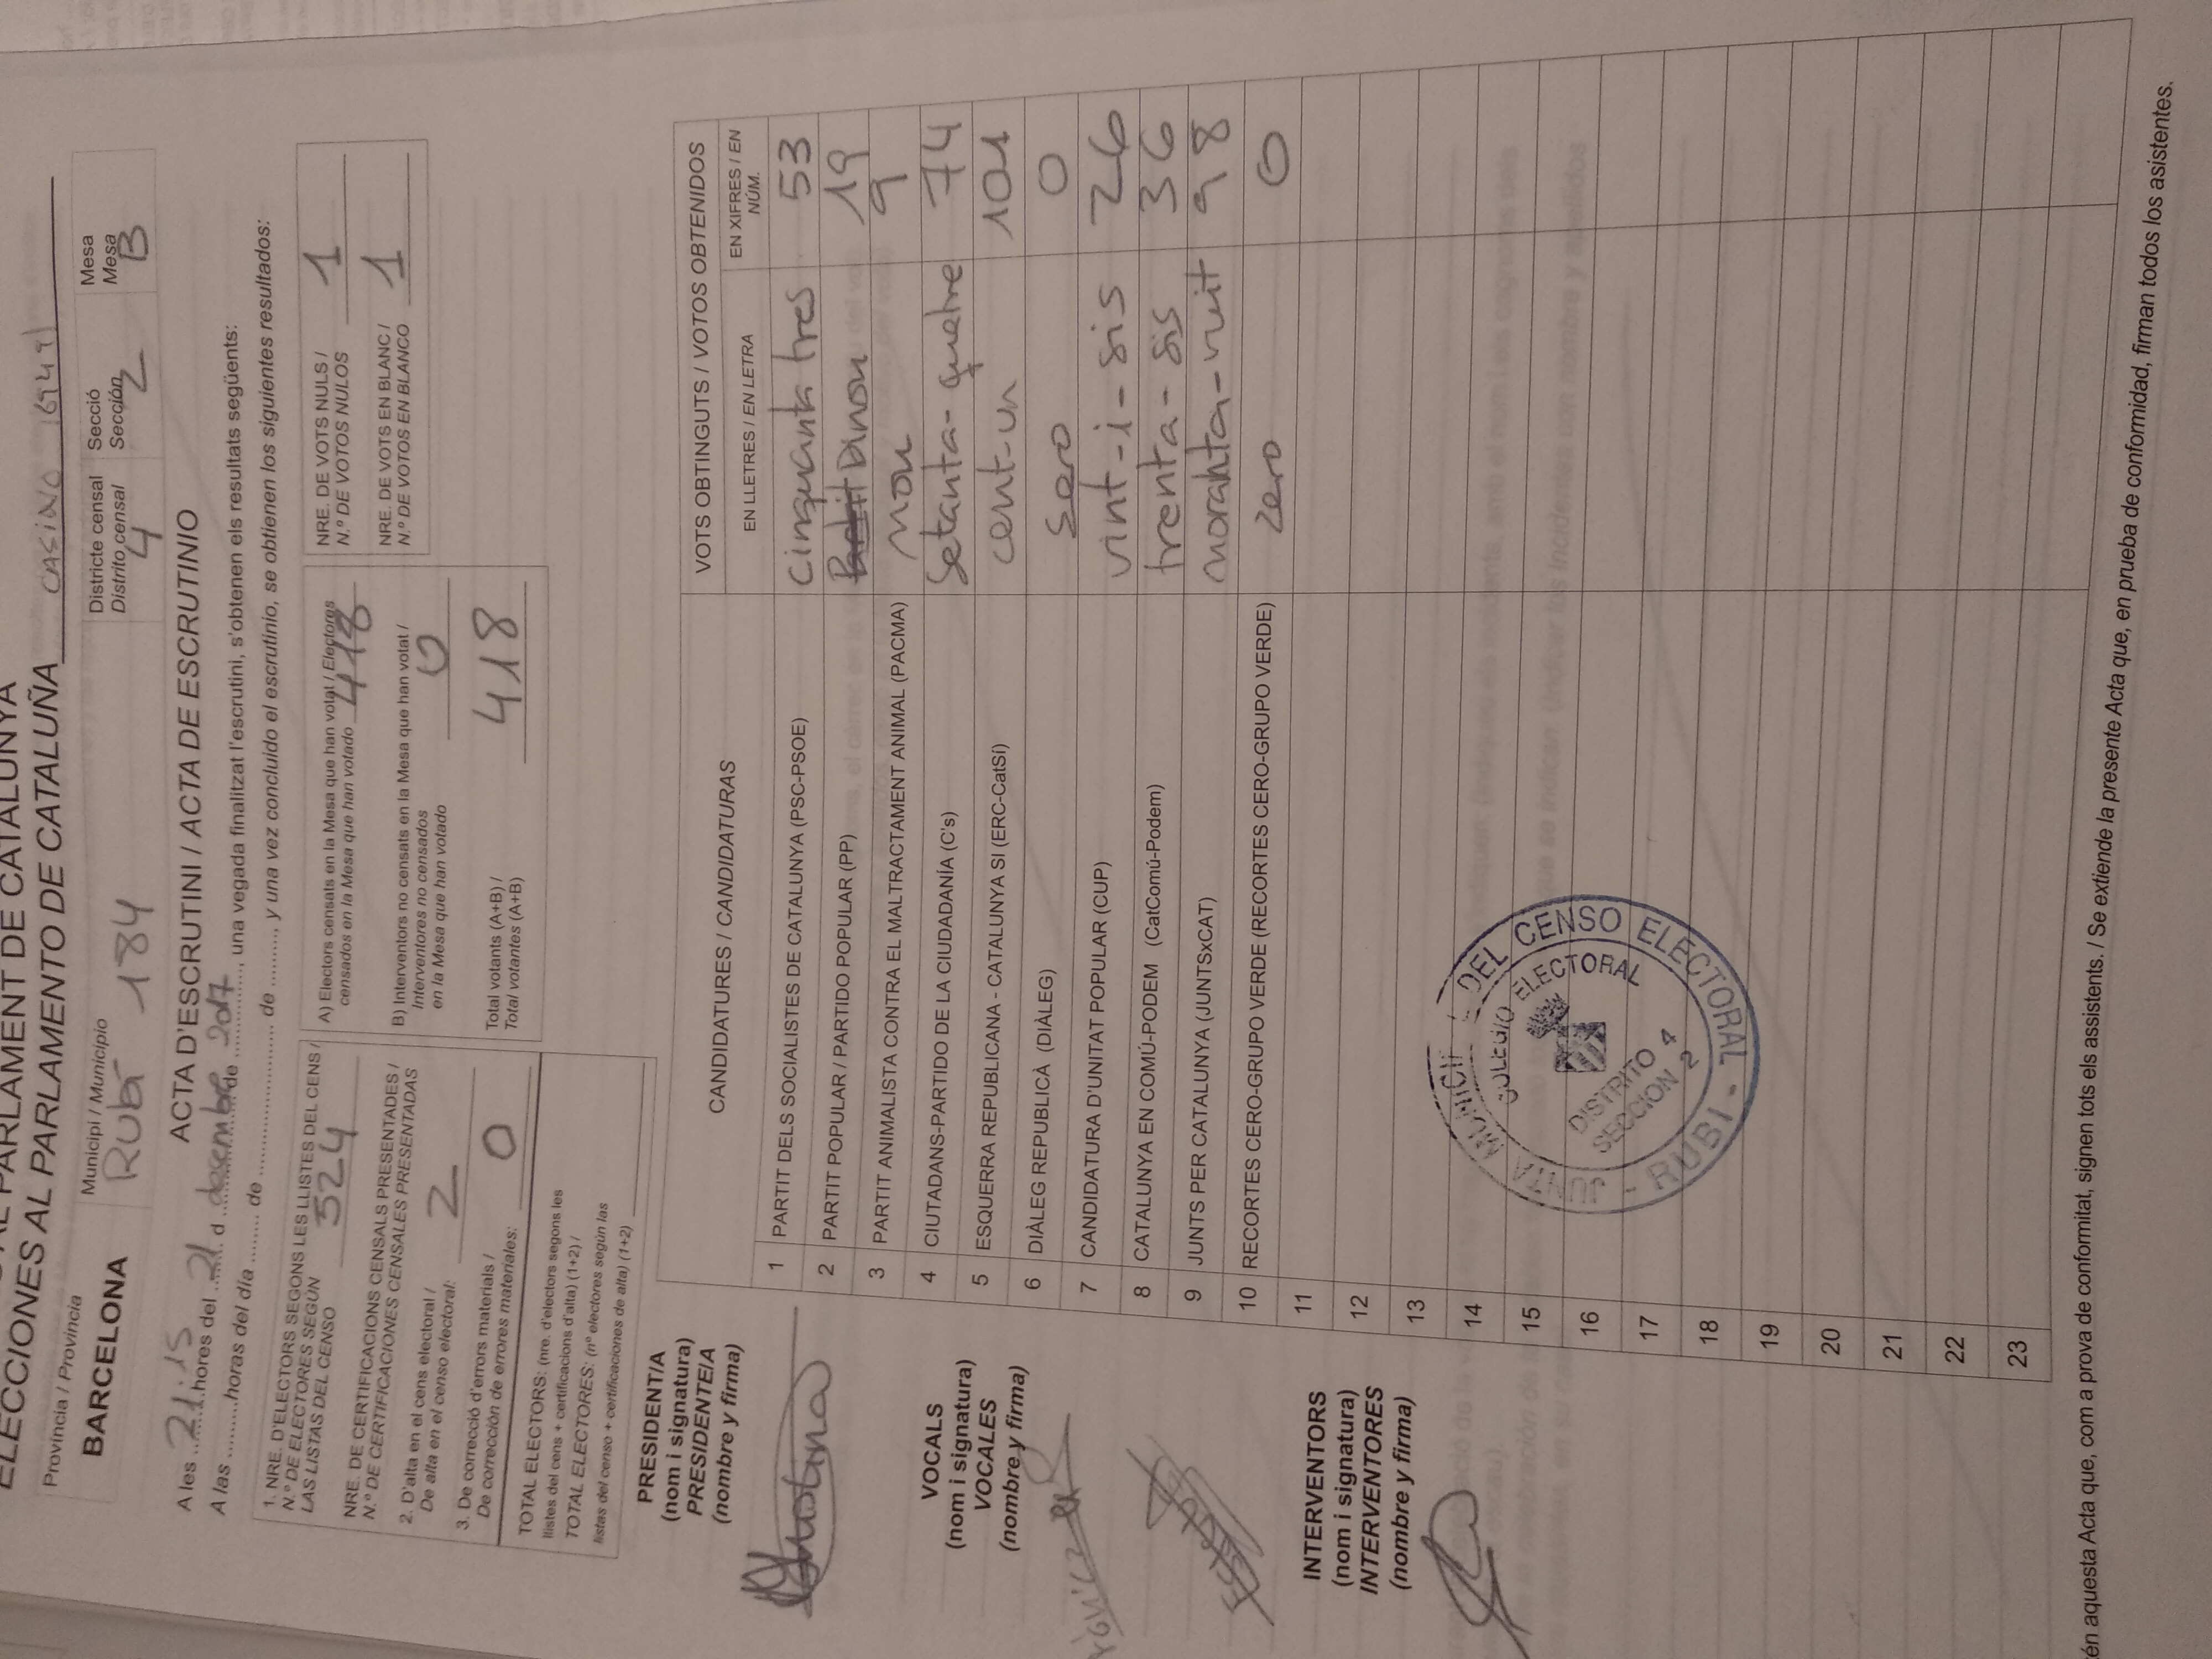 AL PARLAMENT DE CATALUNYA
ELECCIONES AL PARLAMENTO DE CATALUÑA CASINO (6949)
Província / Provincia
BARCELONA
Municipi / Municipio
Rubí 184
Districte censal
Distrito censal
4
Secció
Sección
2
Mesa
Mesa
B
ACTA D'ESCRUTINI / ACTA DE ESCRUTINIO
A les 21:15 hores del 21 d desembre de 2017, una vegada finalitzat l'escrutini, s'obtenen els resultats següents:
A las .........horas del día ........ de ........................ de ........., y una vez concluido el escrutinio, se obtienen los siguientes resultados:
1. NRE. D'ELECTORS SEGONS LES LLISTES DEL CENS /
N.º DE ELECTORES SEGÚN
LAS LISTAS DEL CENSO 524
NRE. DE CERTIFICACIONS CENSALS PRESENTADES /
N.º DE CERTIFICACIONES CENSALES PRESENTADAS
2. D'alta en el cens electoral /
De alta en el censo electoral: 2
3. De correcció d'errors materials /
De corrección de errores materiales: 0
TOTAL ELECTORS: (nre. d'electors segons les
llistes del cens + certificacions d'alta) (1+2) /
TOTAL ELECTORES: (nº electores según las
listas del censo + certificaciones de alta) (1+2)
A) Electors censats en la Mesa que han votat / Electores
censados en la Mesa que han votado 418
B) Interventors no censats en la Mesa que han votat /
Interventores no censados
en la Mesa que han votado 0
Total votants (A+B) /
Total votantes (A+B) 418
NRE. DE VOTS NULS /
N.º DE VOTOS NULOS 1
NRE. DE VOTS EN BLANC /
N.º DE VOTOS EN BLANCO 1
PRESIDENT/A
(nom i signatura)
PRESIDENTE/A
(nombre y firma)
VOCALS
(nom i signatura)
VOCALES
(nombre y firma)
INTERVENTORS
(nom i signatura)
INTERVENTORES
(nombre y firma)
CANDIDATURES / CANDIDATURAS
VOTS OBTINGUTS / VOTOS OBTENIDOS
EN LLETRES / EN LETRA
EN XIFRES / EN
NÚM.
1 PARTIT DELS SOCIALISTES DE CATALUNYA (PSC-PSOE) cinquanta tres 53
2 PARTIT POPULAR / PARTIDO POPULAR (PP) Partit Dinou 19
3 PARTIT ANIMALISTA CONTRA EL MALTRACTAMENT ANIMAL (PACMA) nou 9
4 CIUTADANS-PARTIDO DE LA CIUDADANÍA (C's) Setanta-quatre 74
5 ESQUERRA REPUBLICANA - CATALUNYA SI (ERC-CatSí) cent-un 101
6 DIÀLEG REPUBLICÀ (DIÀLEG) Sero 0
7 CANDIDATURA D'UNITAT POPULAR (CUP) vint-i-sis 26
8 CATALUNYA EN COMÚ-PODEM (CatComú-Podem) trenta-sis 36
9 JUNTS PER CATALUNYA (JUNTSxCAT) noranta-vuit 98
10 RECORTES CERO-GRUPO VERDE (RECORTES CERO-GRUPO VERDE) zero 0
11
12
13
14
15
16
17
18
19
20
21
22
23
JUNTA MUNICIPAL DEL CENSO ELECTORAL - RUBI -
COLEGIO ELECTORAL
DISTRITO 4
SECCION 2
én aquesta Acta que, com a prova de conformitat, signen tots els assistents. / Se extiende la presente Acta que, en prueba de conformidad, firman todos los asistentes.